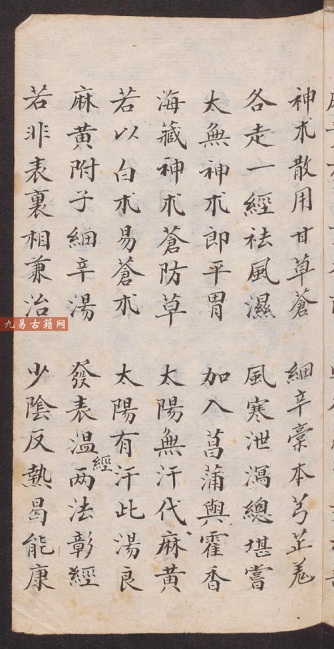 神朮散用甘草蒼 細辛藁本芎芷羗
各走一經祛風濕 風寒泄瀉總堪嘗
太無神朮即平胃 加入菖蒲與藿香
海藏神朮蒼防草 太陽無汗代麻黃
若以白朮易蒼朮 太陽有汗此湯良
麻黃附子細辛湯 發表溫經两法彰經
若非表裏相兼治 少陰反熱曷能康
九易古籍网